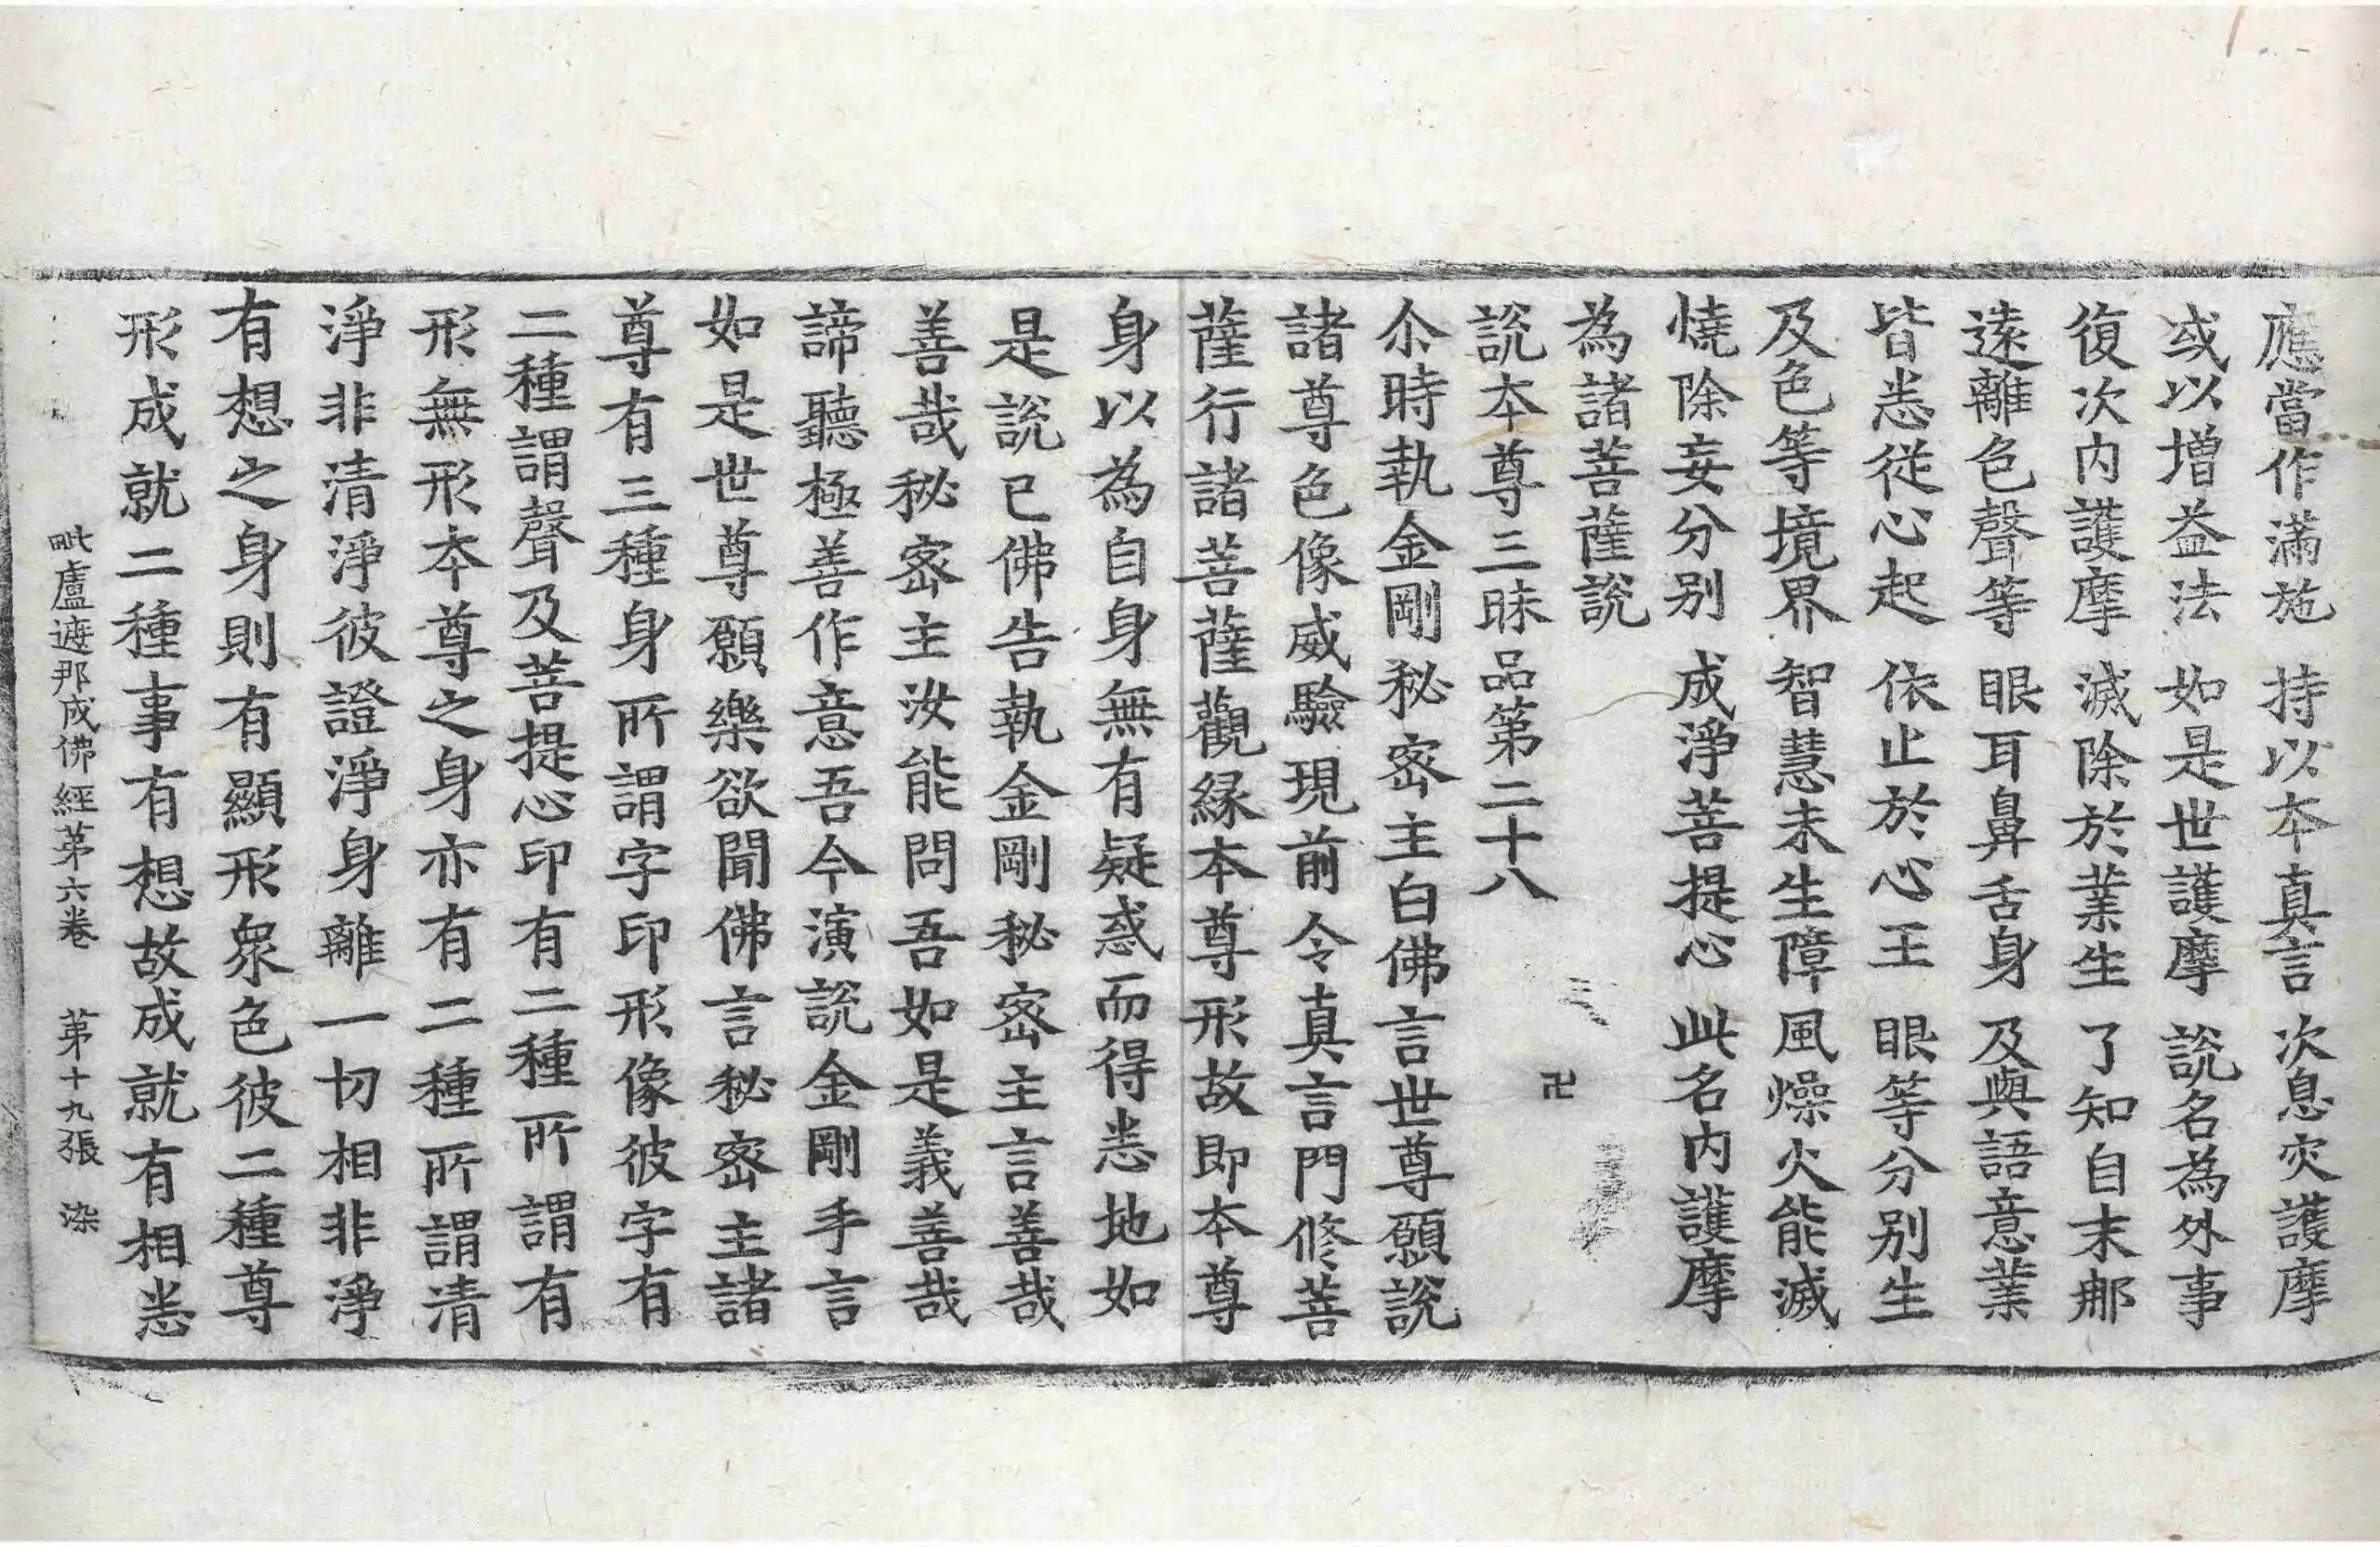 應當作滿施　持以本真言　次息灾護摩
或以增益法　如是世護摩　說名為外事
復次內護摩　滅除於業生　了知自末那
遠離色聲等　眼耳鼻舌身　及與語意業
皆悉從心起　依止於心王　眼等分別生
及色等境界　智慧未生障　風燥火能滅
燒除妄分別　成淨菩提心　此名內護摩
為諸菩薩說
說本尊三昧品第二十八　卍
尒時執金剛秘密主白佛言世尊願說
諸尊色像威驗現前令真言門修菩
薩行諸菩薩觀緣本尊形故即本尊
身以為自身無有疑惑而得悉地如
是說已佛告執金剛秘密主言善哉
善哉秘密主汝能問吾如是義善哉
諦聽極善作意吾今演說金剛手言
如是世尊願樂欲聞佛言秘密主諸
尊有三種身所謂字印形像彼字有
二種謂聲及菩提心印有二種所謂有
形無形本尊之身亦有二種所謂清
淨非清淨彼證淨身離一切相非淨
有想之身則有顯形眾色彼二種尊
形成就二種事有想故成就有相悉
毗盧遮那成佛經第六卷　第十九張　染